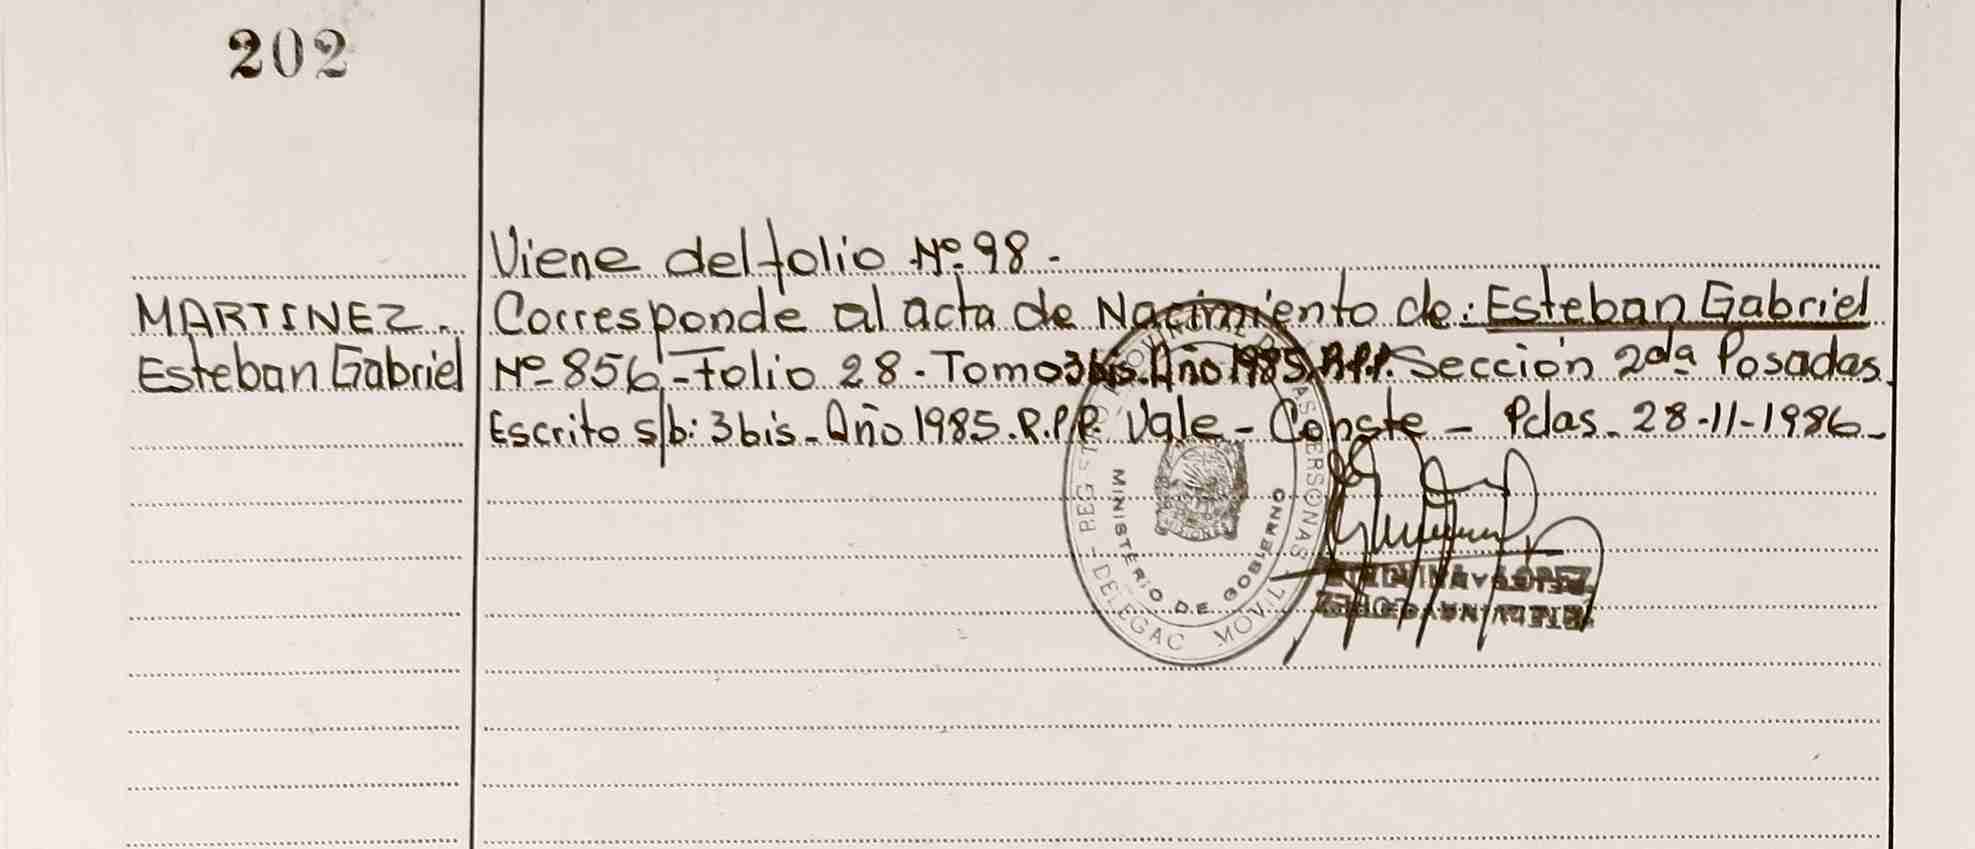 202
Viene del folio Nº 98.
MARTINEZ.
Esteban Gabriel
Corresponde al acta de Nacimiento de: Esteban Gabriel
Nº 856 - Folio 28. Tomo 3 bis. Año 1985. R.P.P. Sección 2da Posadas.
Escrito s/b: 3 bis. Año 1985. R.P.P. Vale - Conste - Pdas. 28-11-1986.
MINISTERIO DE GOBIERNO
PERSONAS
DELEGAC MOVIL